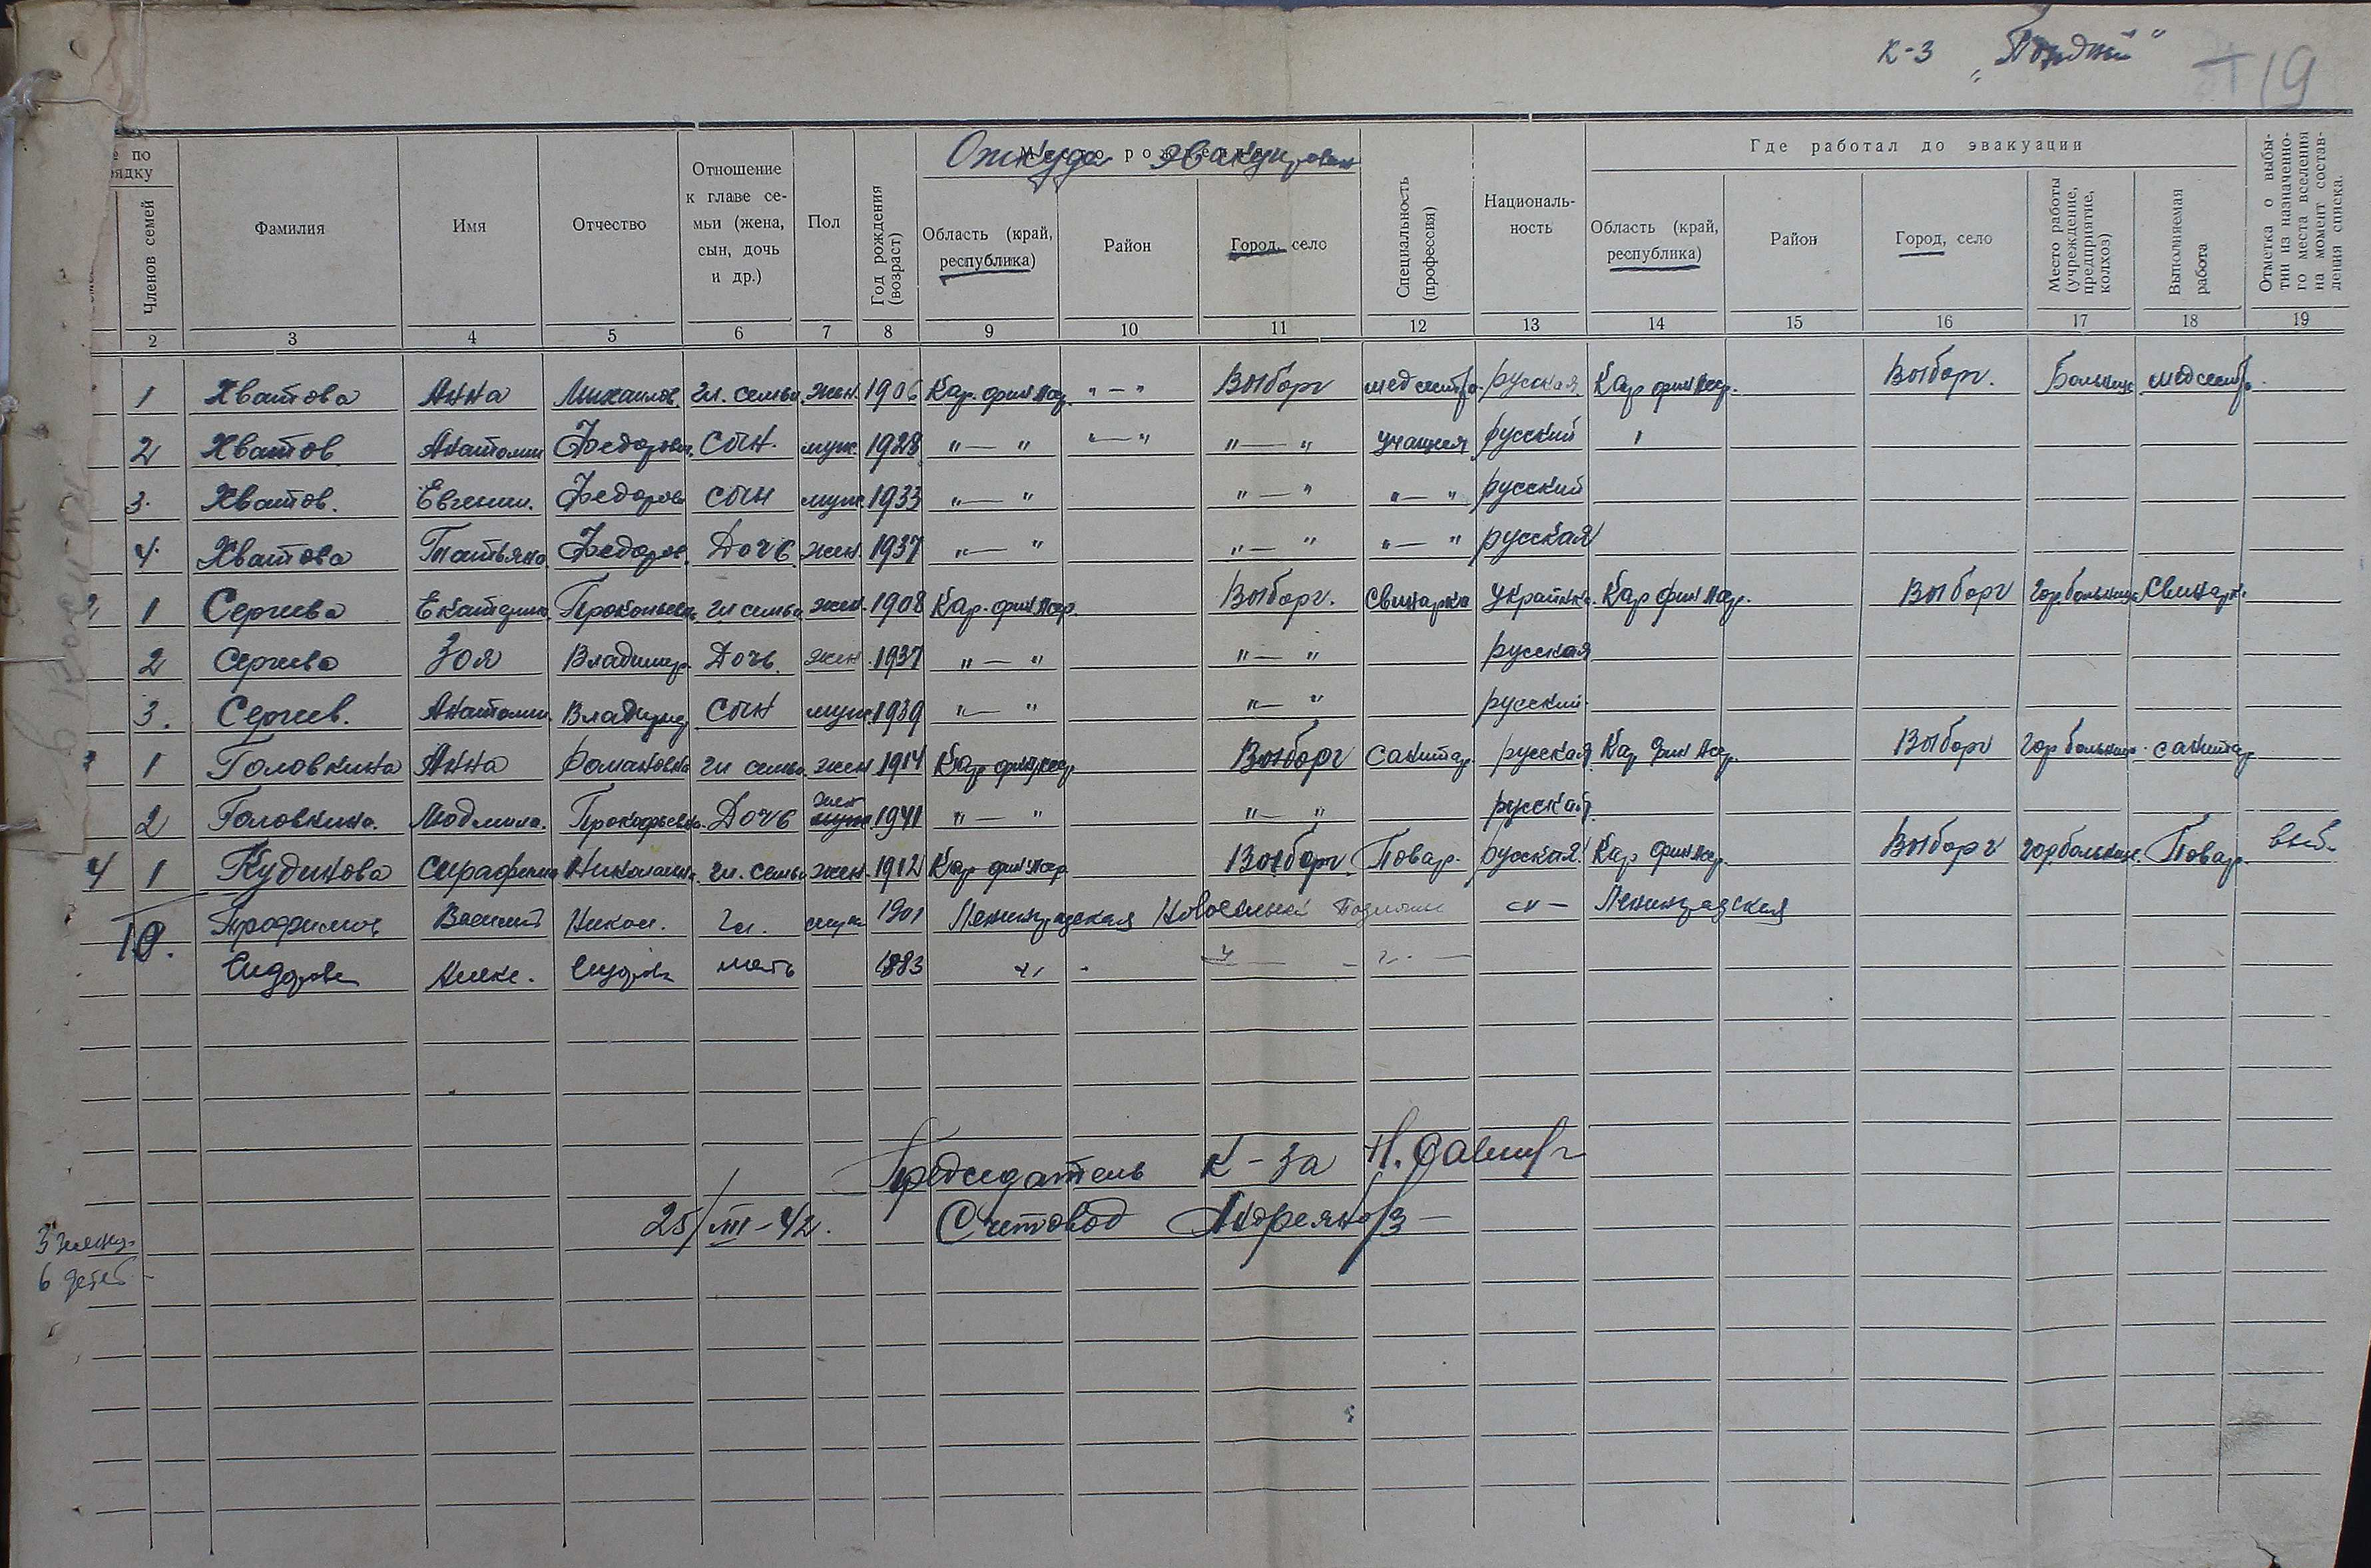 к-з
19
№ по порядку
Членов семей
Фамилия
Имя
Отчество
Отношение к главе семьи (жена, сын, дочь и др.)
Пол
Год рождения (возраст)
Место рождения
Откуда эвакуирован
Область (край, республика)
Район
Город, село
Специальность (профессия)
Националь-ность
Где работал до эвакуации
Область (край, республика)
Район
Город, село
Место работы (учреждение, предприятие, колхоз)
Выполняемая работа
Отметка о выбы-тии из назначенно-го места вселения на момент состав-ления списка.
2 3 4 5 6 7 8 9 10 11 12 13 14 15 16 17 18 19
1 Хватова Анна Михайлов. гл. семьи жен. 1906 Кар. фин сср. "—" Выборг медсестра русская Кар фин сср. Выборг. Больница медсестра
2 Хватов Анатолии Федоров. сын. муж. 1928 "—" "—" "—" учащия русский "
3. Хватов. Евгении. Федоров сын муж. 1933 "—" "—" "—" русский
4. Хватова Татьяна Федоров. Дочь жен. 1937 "—" "—" "—" русская
2 1 Сергеева Екатерина Прокопьевна гл семьи жен. 1908 Кар. фин сср. Выборг. Свинарка Украинка. Кар фин сср. Выборг гор. больница Свинарк.
2 Сергеева Зоя Владимир. Дочь. жен. 1937 "—" "—" русская
3. Сергеев. Анатолии. Владимир сын муж. 1939 "—" "—" русский.
3 1 Головкина Анна Романовна гл семьи жен 1914 Кар фин сср Выборг Санитар. русская Кар Фин сср. Выборг гор больниц. санитар
2 Головкина. Людмила. Прокофьевна Дочь жен 1941 "—" "—" русская
4 1 Кудинова Серафима Николаевна. гл. семьи жен. 1912 Кар фин сср Выборг. Повар. русская. Кар фин сср. Выборг гор больнице. Повар. выб.
10. Трофимов Василий Никол. гл. муж 1901 Ленинградская —"— Ленинградская
Сидорова мать 1883 "
Председатель к-за
25/III-42. Счетовод Андреянов
6 детей